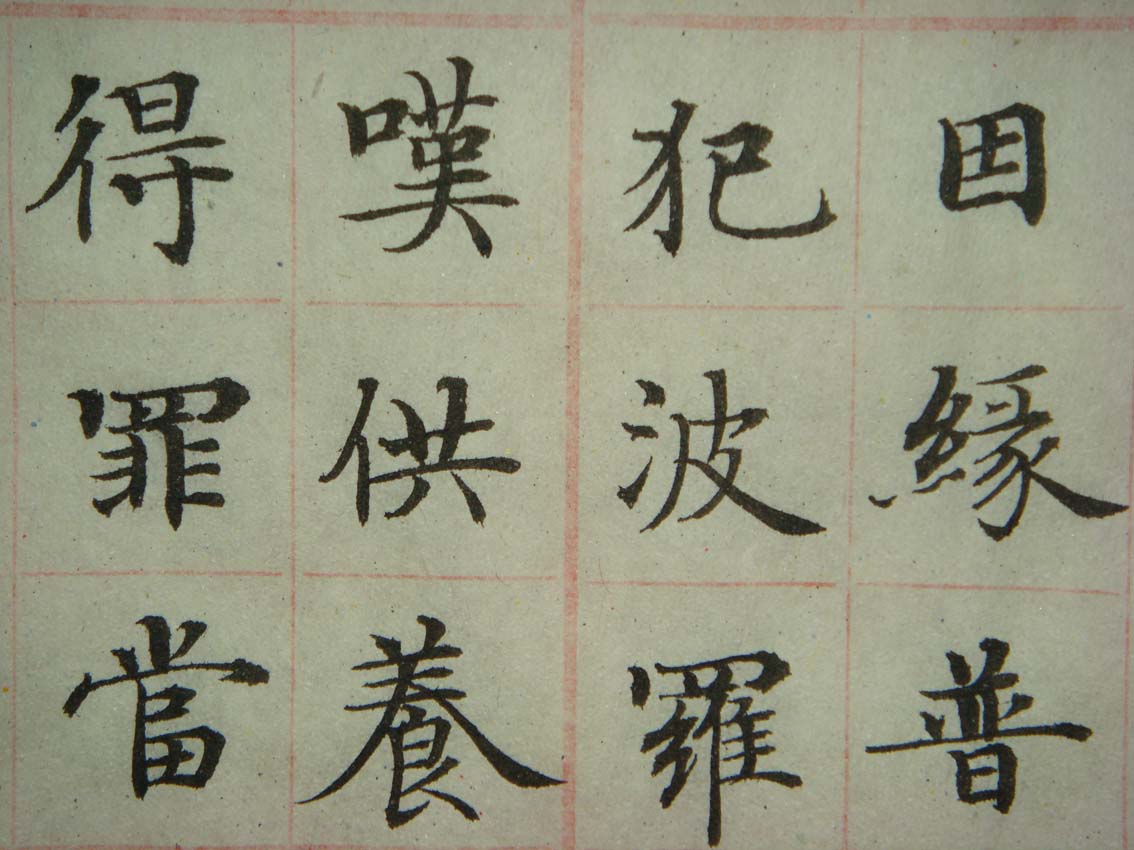 因緣普
犯波羅
嘆供養
得罪當